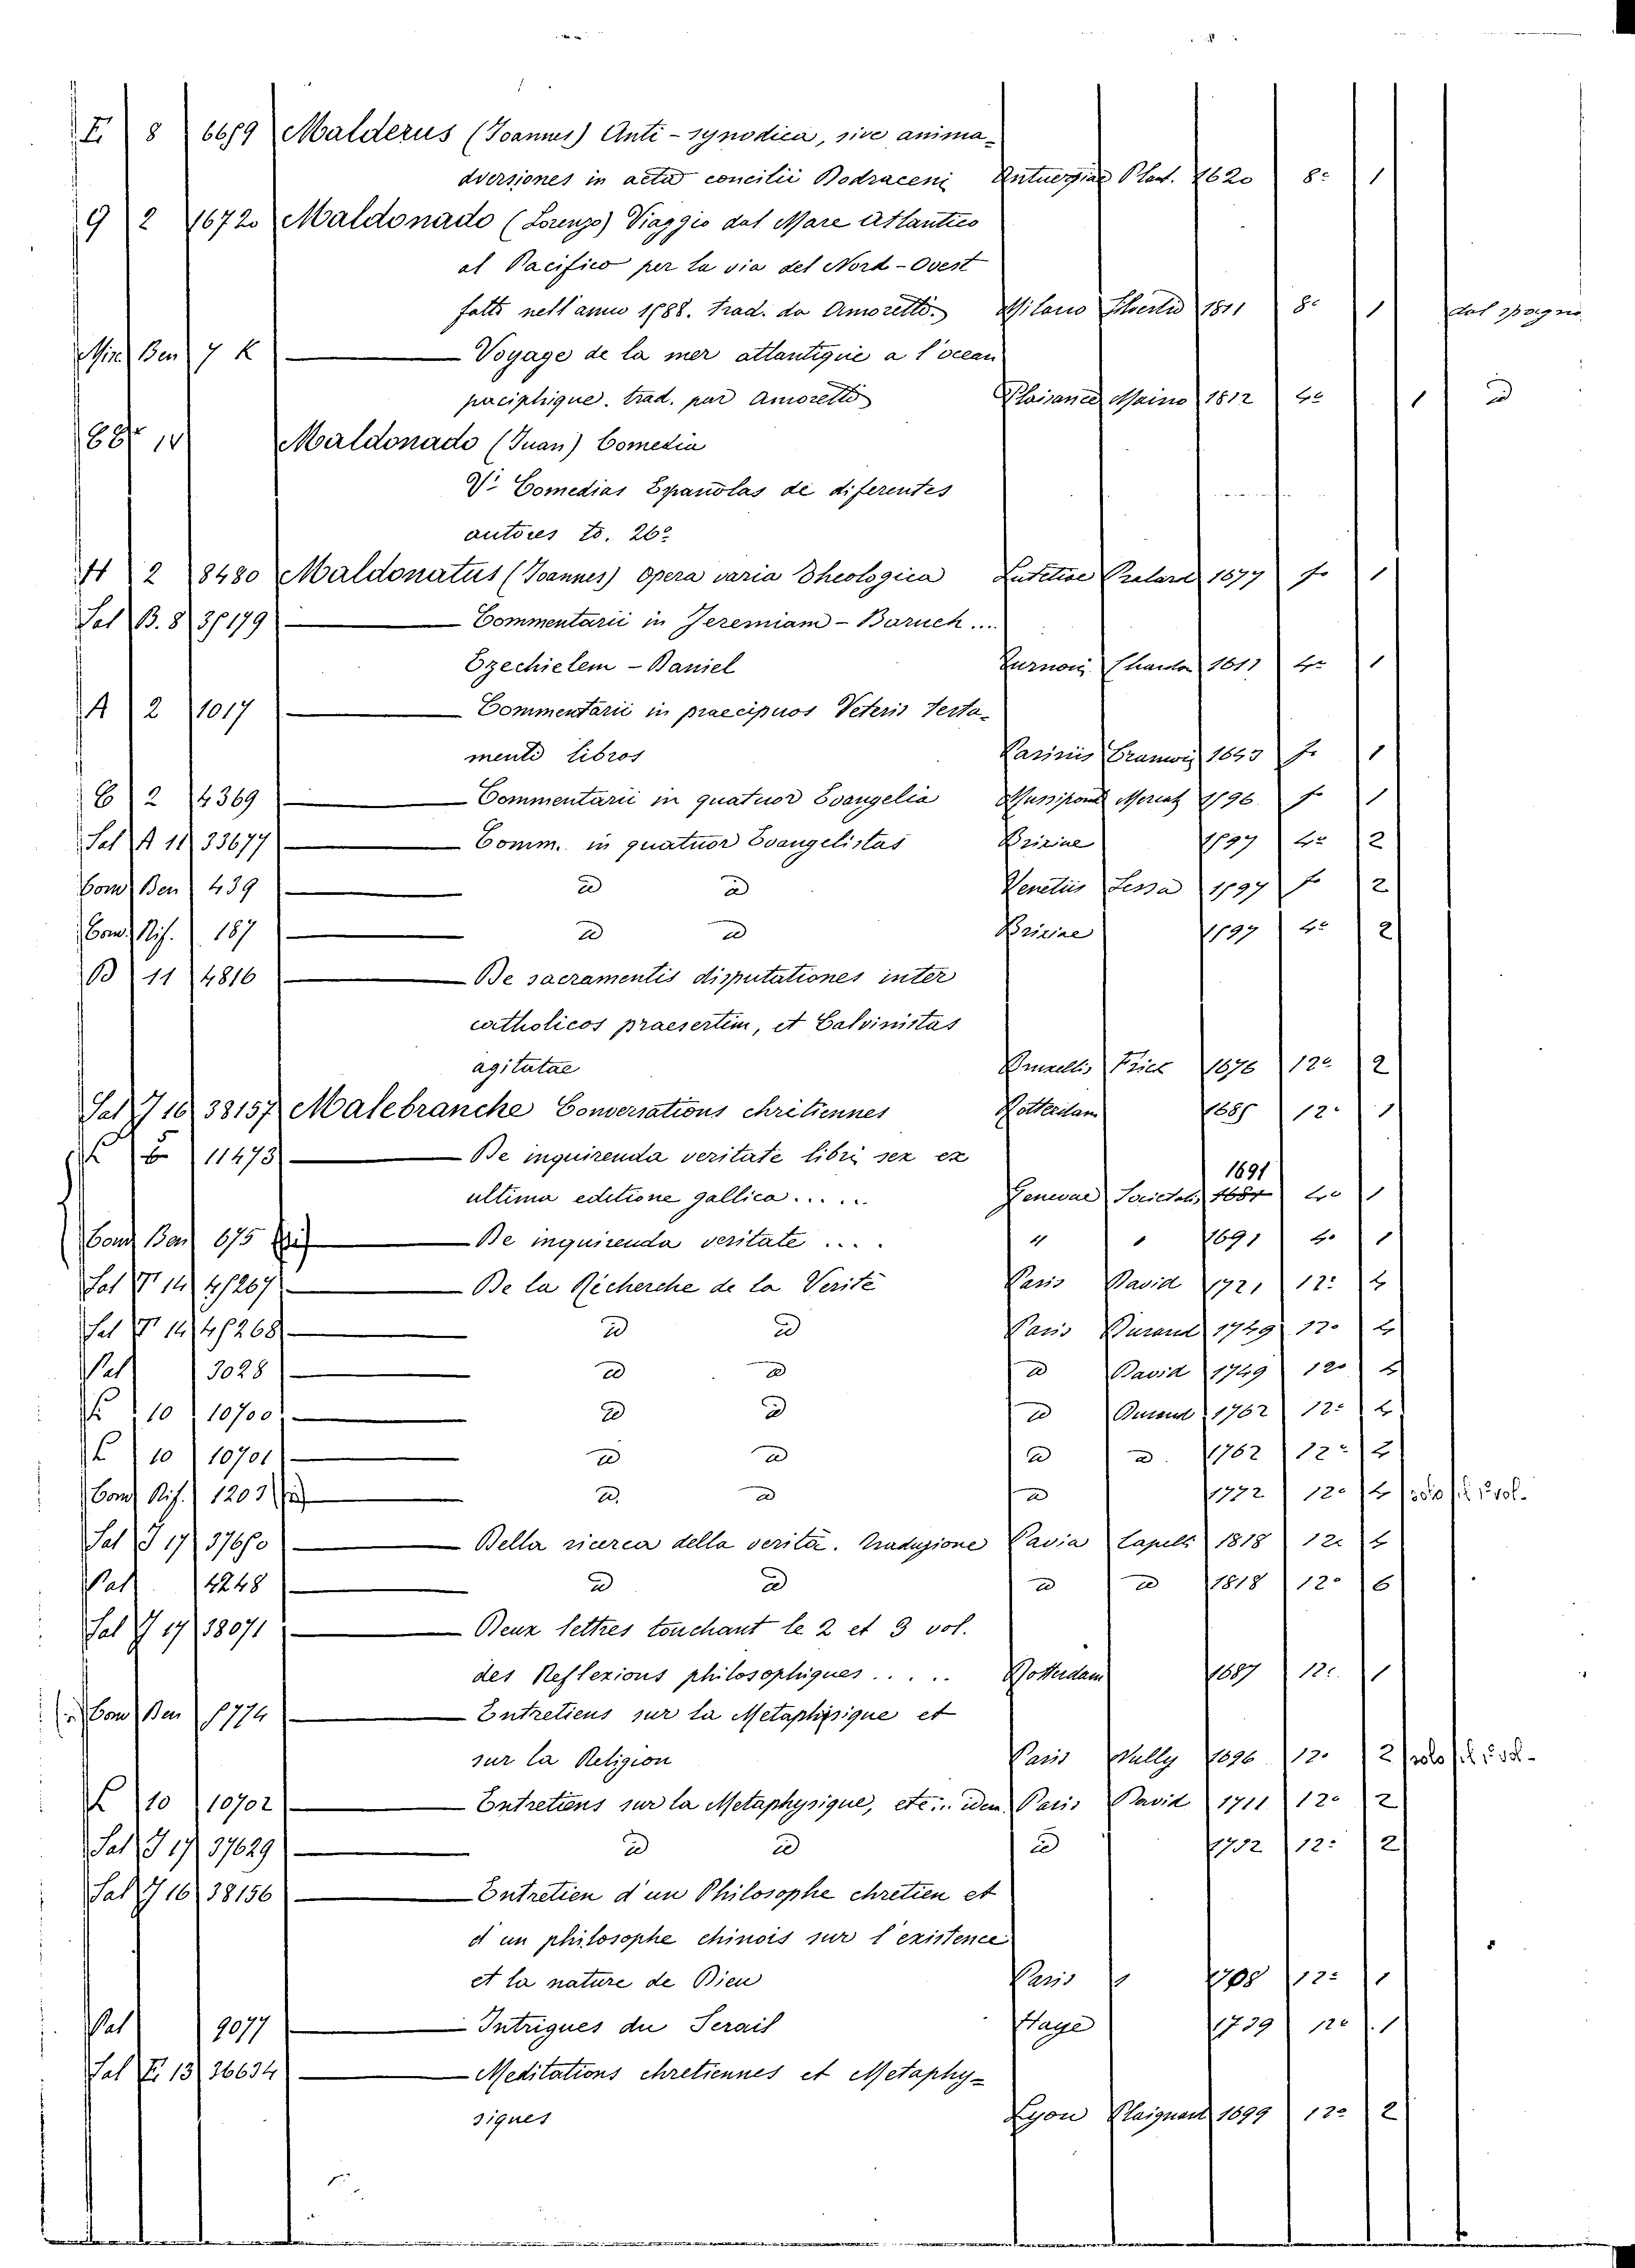 E 8 6659 Malderus (Joannes) Anti-synodica, sive anima-
dversiones in acta concilii Dodraceni Antuerpiae Plant. 1620 8º 1
9 2 16720 Maldonado (Lorenzo) Viaggio dal Mare Atlantico
al Pacifico per la via del Nord-Ovest
fatto nell'anno 1588. trad. da Amoretti. Milano 1811 8º 1 dal
Min Ben 7 K — Voyage de la mer atlantique a l'ocean
paciphique. trad. par Amoretti Plaisance Maino 1812 4º 1 id
14 Maldonado (Juan) Comedia
Vi Comedias Espanolas de diferentes
autores to. 26º
H 2 8480 Maldonatus (Joannes) Opera varia Theologica Lutetiae Pralard 1677 fº 1
Sal B. 8 35179 — Commentarii in Jeremiam - Baruch....
Ezechielem - Daniel Turnoni 1611 4º 1
A 2 1017 — Commentarii in praecipuos Veteris Testa-
menti libros Parisiis Cramoisy 1643 fº 1
C 2 4369 — Commentarii in quatuor Evangelia Mercat 1596 fº 1
Sal A 11 33677 — Comm. in quatuor Evangelistas Brixiae 1597 4º 2
Com Ben 439 — id id Venetiis Sessa 1597 fº 2
Com Rif. 187 — id id Brixiae 1597 4º 2
B 11 4816 — De sacramentis disputationes inter
catholicos praesertim, et Calvinistas
agitatae Bruxellis Fricx 1676 12º 2
Sal J 16 38157 Malebranche Conversations chrétiennes Rotterdam 1685 12º 1
11473 — De inquirenda veritate libri sex ex
ultima editione gallica..... Genevae Societatis 1691 4º 1
Com Ben 675 — De inquirenda veritate .... " " 1691 4º 1
Sal 14 45267 — De la Récherche de la Verité Paris David 1721 12º 4
Sal 14 45268 — id id Paris Durand 1749 12º 4
Pal 3028 — id id id David 1749 12º 4
10 10700 — id id id Durand 1762 12º 4
10 10701 — id id id id 1762 12º 4
Com Rif. 1203 — id id id 1772 12º 4 solo il 1º vol.
Sal J 17 37650 — Della ricerca della verità. traduzione Pavia Capelli 1818 12º 6
Pal 4248 — id id id id 1818 12º 6
Sal J 17 38071 — Deux lettres touchant le 2 et 3 vol.
des Reflexions philosophiques..... Rotterdam 1687 12º 1
Com Ben 5774 — Entretiens sur la Metaphisique et
sur la Religion Paris 1696 12º 2 solo il 1º vol.
10 10702 — Entretiens sur la Metaphysique, etc... idem Paris David 1711 12º 2
Sal J 17 37629 — id id id 1732 12º 2
Sal J 16 38156 — Entretien d'un Philosophe chretien et
d'un philosophe chinois sur l'existence
et la nature de Dieu Paris 1708 12º 1
Pal 9077 — Intrigues du Serail Haye 1739 12º 1
Sal E 13 36634 — Meditations chretiennes et Metaphy-
siques Lyon Plaignard 1699 12º 2